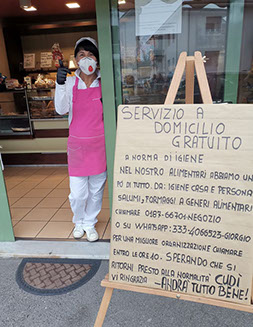 SERVIZIO A
DOMICILIO
GRATUITO
A NORMA DI IGIENE
NEL NOSTRO ALIMENTARI ABBIAMO UN
PO' DI TUTTO. DA: IGIENE CASA E PERSONA
SALUMI, FORMAGGI A GENERI ALIMENTARI
CHIAMARE 0187-66701-NEGOZIO
O SU WHATSAPP: 333-4066523-GIORGIO
PER UNA MIGLIORE ORGANIZZAZIONE CHIAMARE
ENTRO LE ORE 10. SPERANDO CHE SI
RITORNI PRESTO ALLA NORMALITÀ CUDÌ
VI RINGRAZIA -ANDRÀ TUTTO BENE!